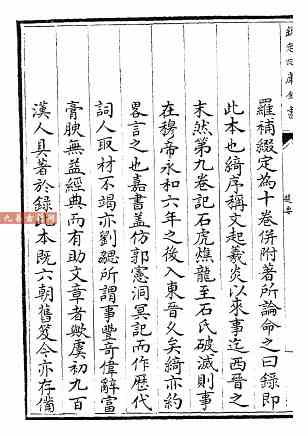 欽定四庫全書
提要
羅補綴定為十卷併附著所論命之曰録即
此本也綺序稱文起羲炎以來事迄西晉之
末然第九卷記石虎燋龍至石氏破滅則事
在穆帝永和六年之後入東晉久矣綺亦約
畧言之也嘉書蓋仿郭憲洞冥記而作歴代
詞人取材不竭亦劉勰所謂事豐奇偉辭富
膏腴無益經典而有助文章者歟虞初九百
漢人具著於録此本既六朝舊笈今亦存備